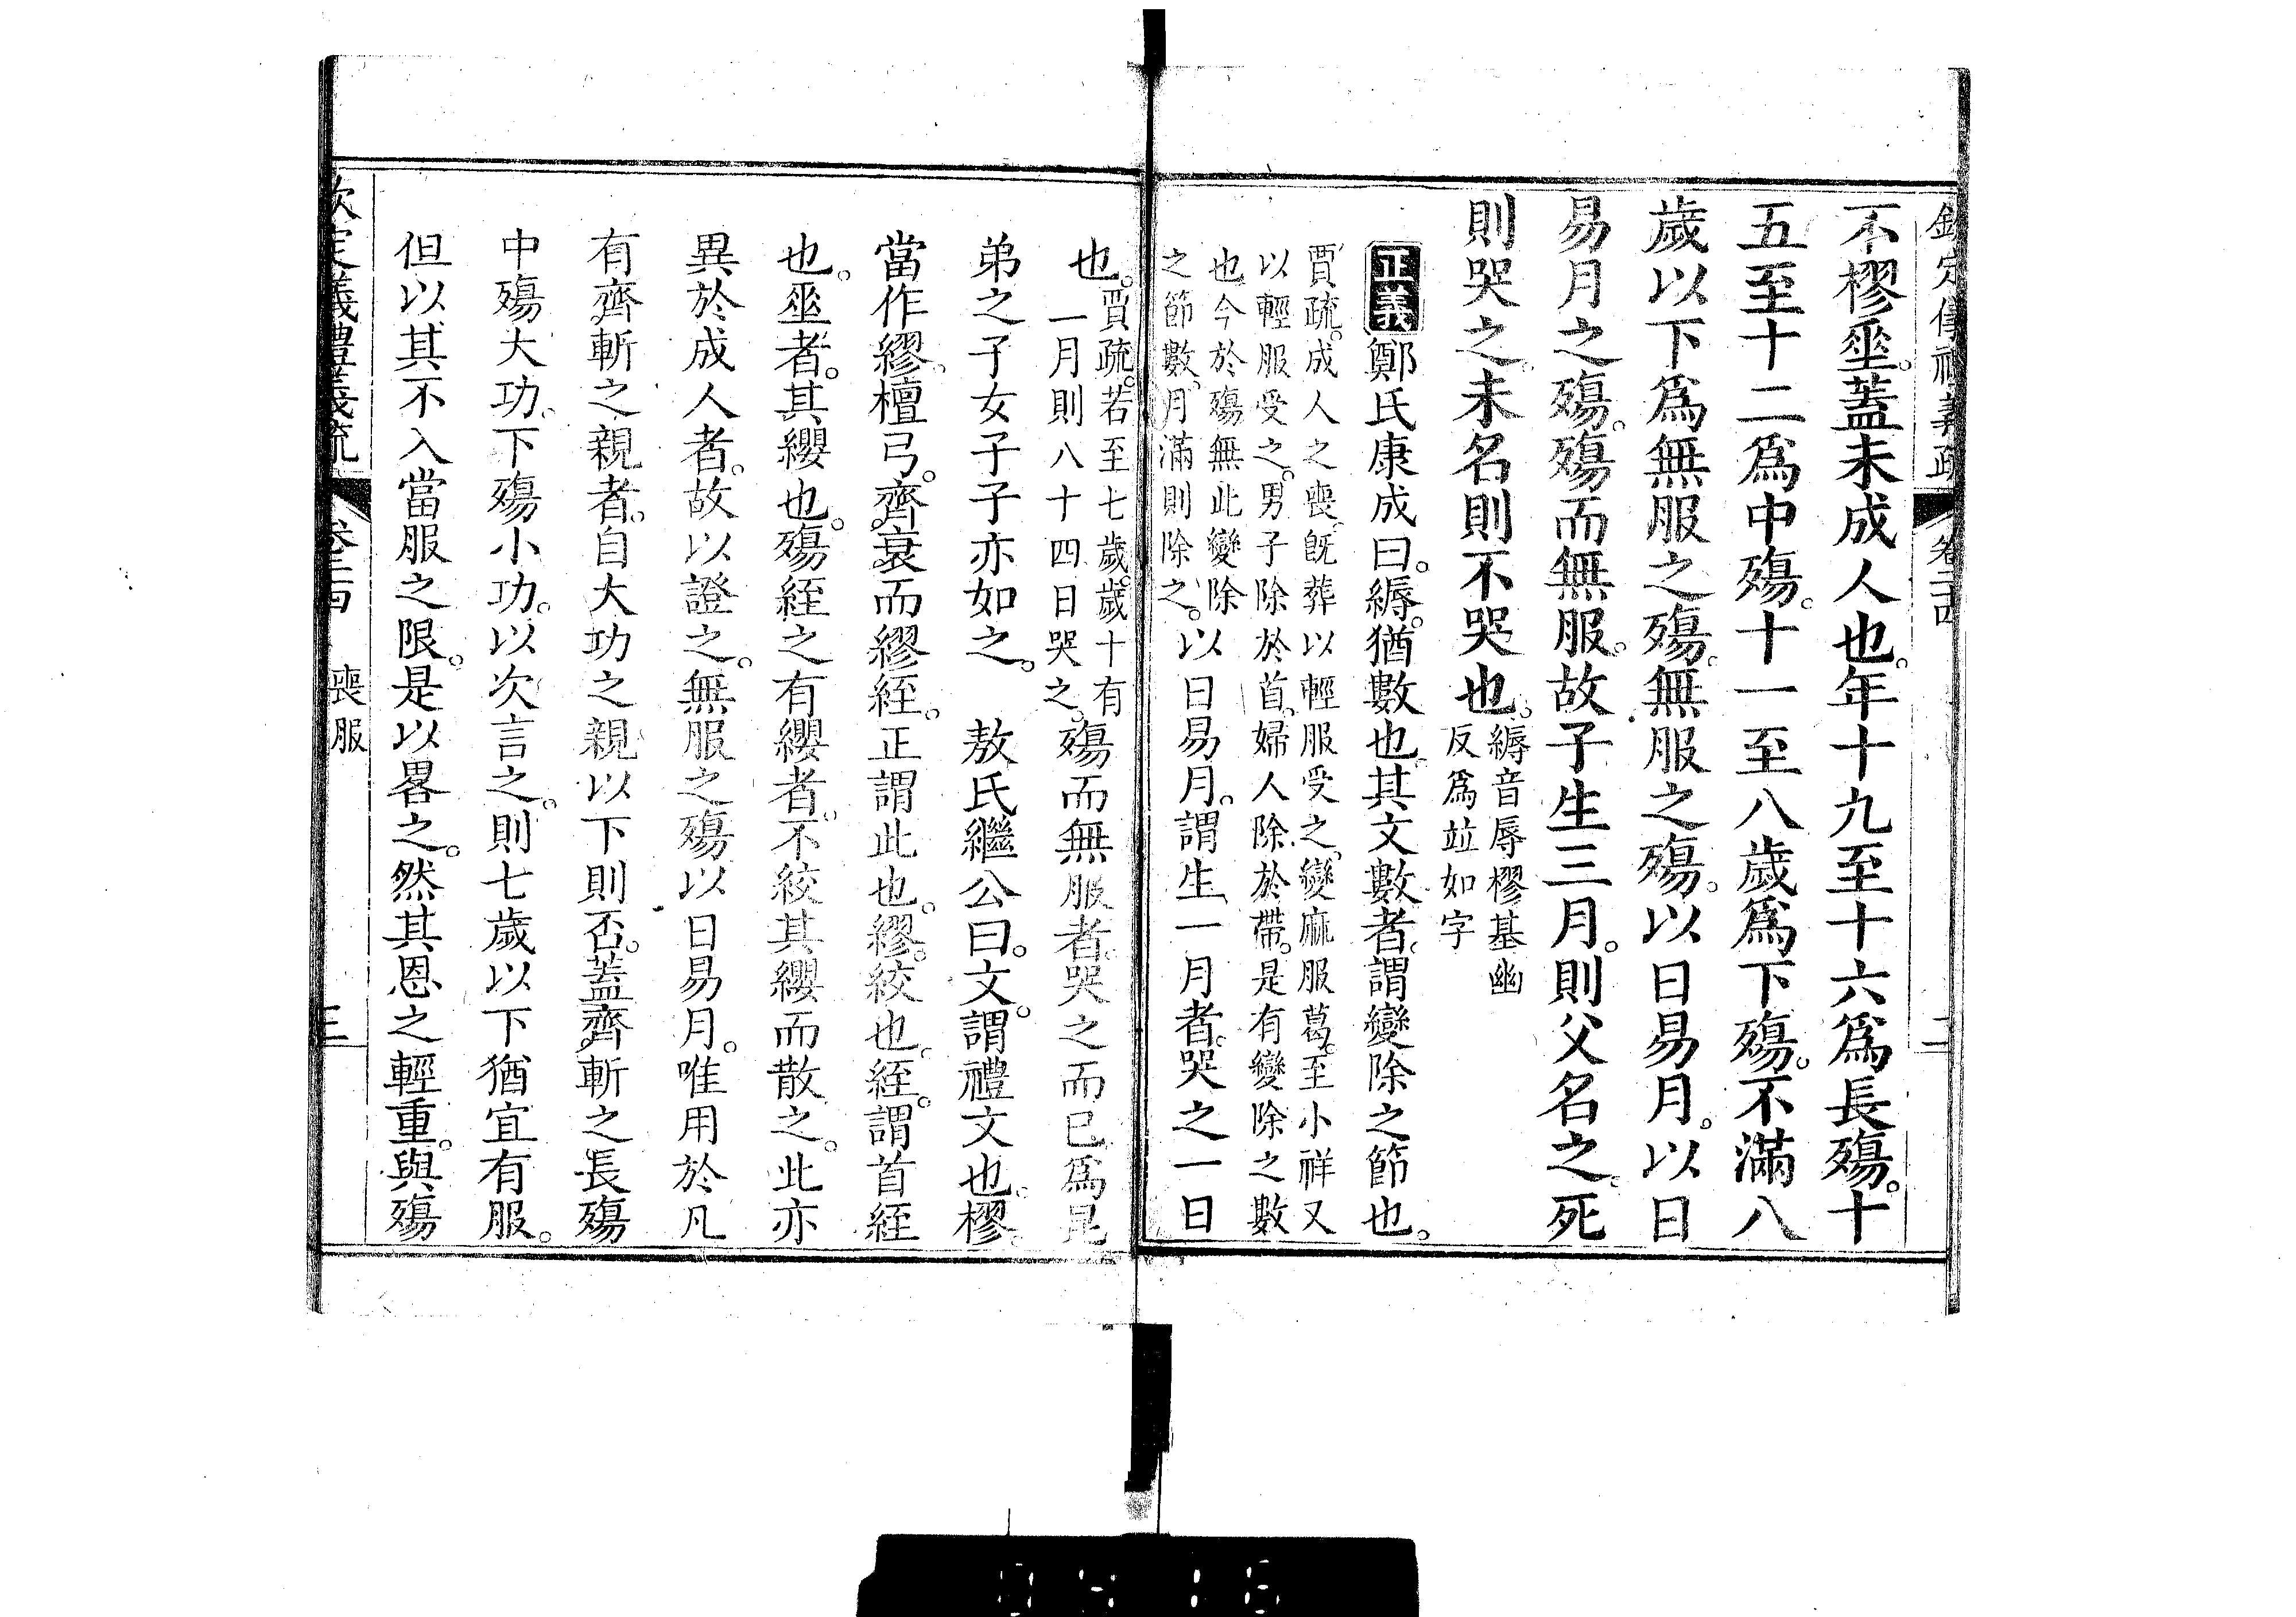 欽定儀禮義疏　卷二十四　二
不樛垂。蓋未成人也。年十九至十六爲長殤。十
五至十二爲中殤。十一至八歲爲下殤。不滿八
歲以下爲無服之殤。無服之殤。以日易月。以日
易月之殤。殤而無服。故子生三月。則父名之。死
則哭之。未名則不哭也。縟音辱樛基幽
反爲竝如字
正義鄭氏康成曰。縟。猶數也。其文數者。謂變除之節也。
賈疏。成人之喪。旣葬以輕服受之。變麻服葛。至小祥又
以輕服受之。男子除於首。婦人除於帶。是有變除之數
也。今於殤無此變除
之節數。月滿則除之。以日易月。謂生一月者。哭之一日
也。賈疏。若至七歲。歲十有
一月則八十四日哭之。殤而無服者。哭之而已。爲昆
弟之子女子子亦如之。　敖氏繼公曰。文。謂禮文也。樛。
當作繆。檀弓。齊衰而繆絰。正謂此也。繆。絞也。絰。謂首絰
也。垂者。其纓也。殤絰之有纓者。不絞其纓而散之。此亦
異於成人者。故以證之。無服之殤以日易月。唯用於凡
有齊斬之親者。自大功之親以下則否。蓋齊斬之長殤
中殤大功。下殤小功。以次言之。則七歲以下猶宜有服。
但以其不入當服之限。是以畧之。然其恩之輕重。與殤
欽定儀禮義疏　卷二十四　喪服　三